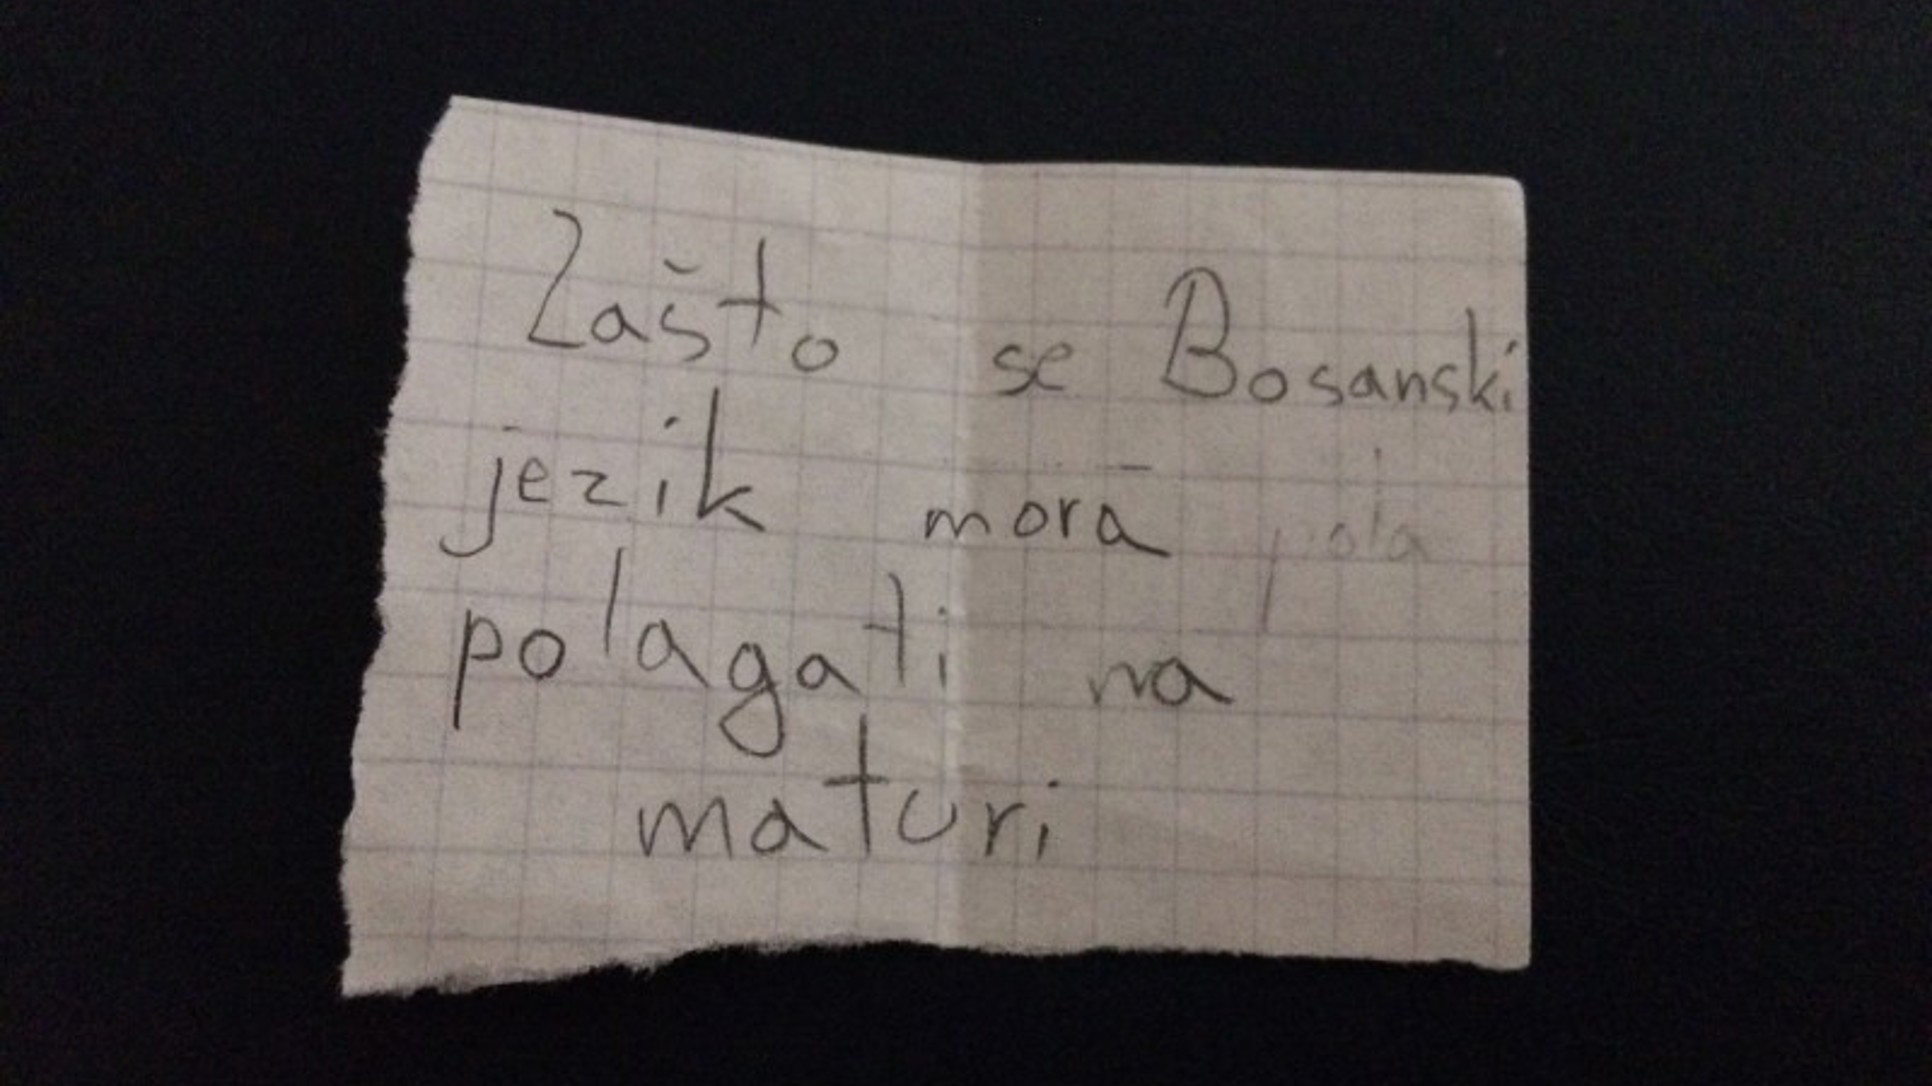 Zašto se Bosanski
jezik mora pola
polagati na
maturi